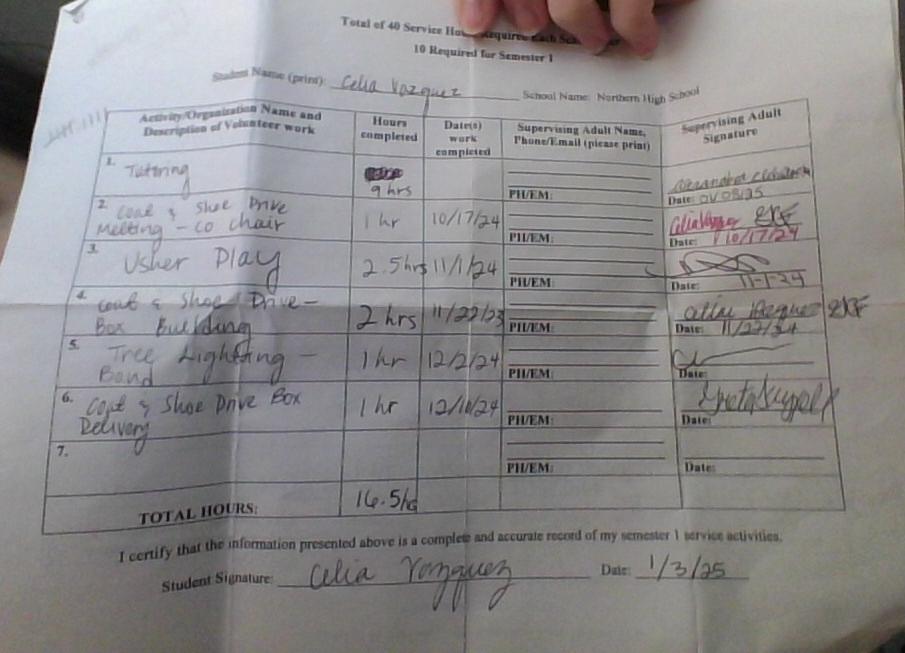 Total of 40 Service Hours Required Each
10 Required for Semester 1
Student Name (print): Celia Vazquez School Name: Northern High School
Activity/Organization Name and Description of Volunteer work
Hours completed
Date(s) work completed
Supervising Adult Name, Phone/Email (please print)
Supervising Adult Signature
1. Tutoring 9 hrs PH/EM: Date: 01/03/25
2. Coat & Shoe Drive
Meeting - co chair 1 hr 10/17/24 PH/EM: Celia Vazquez Date: 10/17/24
3. Usher Play 2.5hrs 11/1/24 PH/EM: Date: 11-1-24
4. Coat & Shoe Drive -
Box Building 2 hrs 11/22/23 PH/EM: Celia Vazquez Date: 11/22/24
5. Tree Lighting -
Band 1 hr 12/2/24 PH/EM: Date:
6. Coat & Shoe Drive Box
Delivery 1 hr 12/10/24 PH/EM: Date:
7. PH/EM: Date:
TOTAL HOURS: 16.5
I certify that the information presented above is a complete and accurate record of my semester 1 service activities.
Student Signature: Celia Vazquez Date: 1/3/25